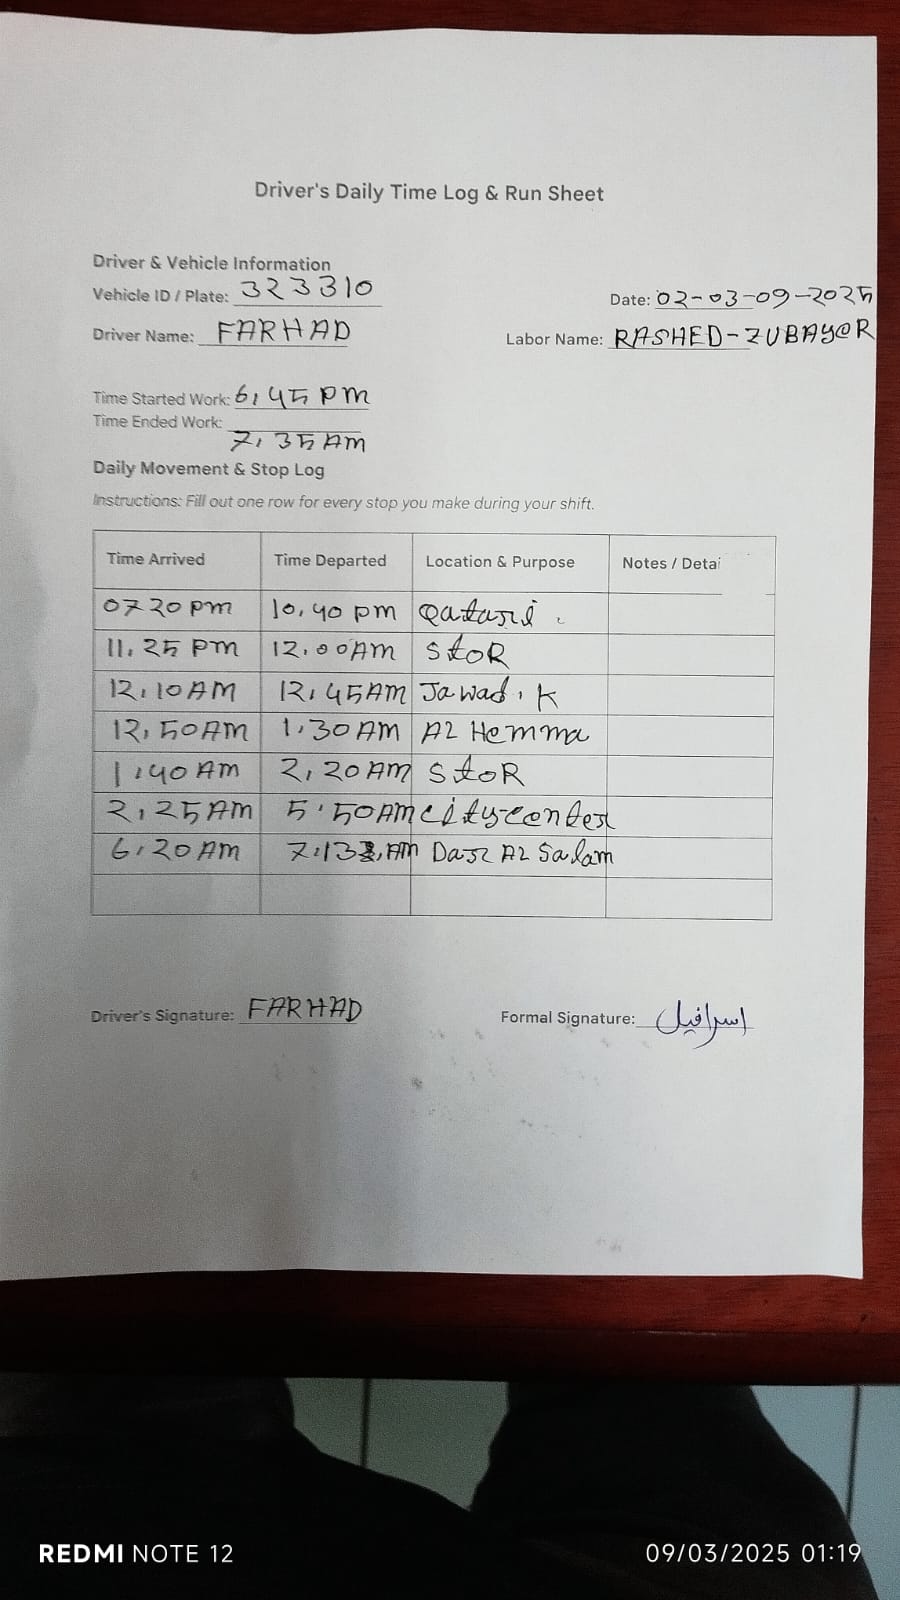 Driver's Daily Time Log & Run Sheet
Driver & Vehicle Information
Vehicle ID / Plate: 323310
Date: 02-03-09-2025
Driver Name: FARHAD
Labor Name: RASHED-ZUBAYER
Time Started Work: 6,45 PM
Time Ended Work:
7,35 AM
Daily Movement & Stop Log
Instructions: Fill out one row for every stop you make during your shift.
Time Arrived Time Departed Location & Purpose Notes / Detai
07 20 pm 10,40 pm Qatari
11,25 PM 12,00 AM StoR
12,10 AM 12,45 AM Jawad, K
12,50 AM 1,30 AM Al Hemma
1,40 AM 2,20 AM StoR
2,25 AM 5,50 AM city-center
6,20 AM AM Dar Al Salam
Driver's Signature: FARHAD
Formal Signature: اسرافيل
REDMI NOTE 12
09/03/2025 01:19